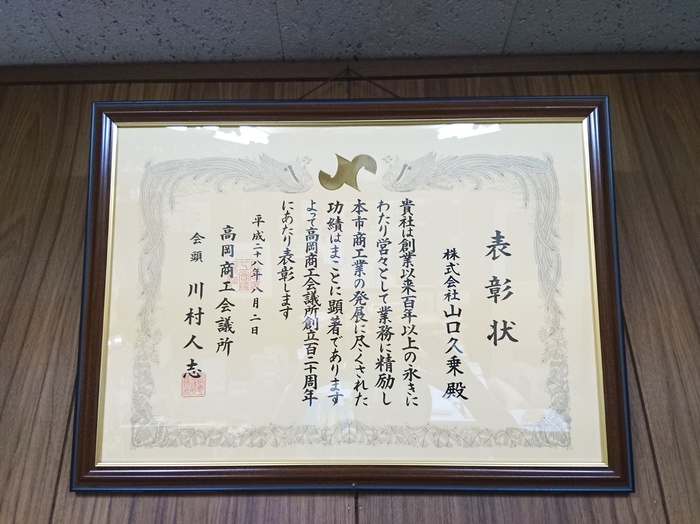 表彰状
株式会社山口久乗殿
貴社は創業以来百年以上の永きに
わたり営々として業務に精励し
本市商工業の発展に尽くされた
功績はまことに顕著であります
よって高岡商工会議所創立百二十周年
にあたり表彰します
平成二十八年八月二日
高岡商工会議所
会頭 川村人志